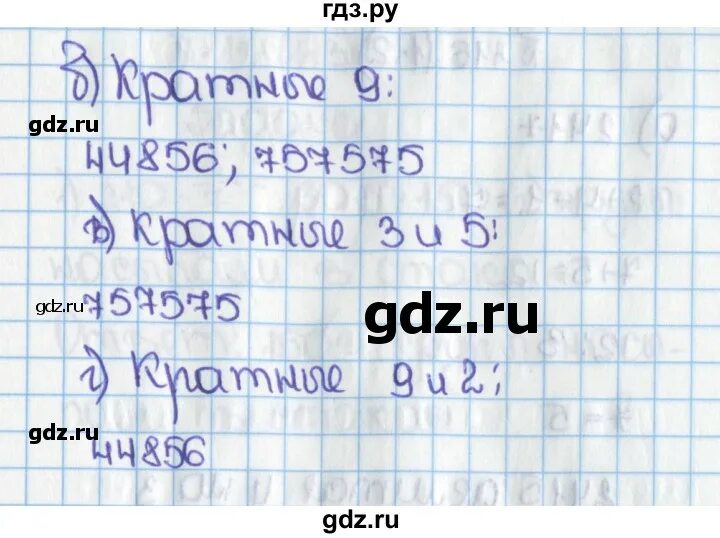 гдз.ру
б) Кратные 9:
gdz.ru
44856; 757575
в) Кратные 3 и 5:
gdz.ru
757575
gdz.ru
г) Кратные 9 и 2:
gdz.ru
44856
gdz.ru